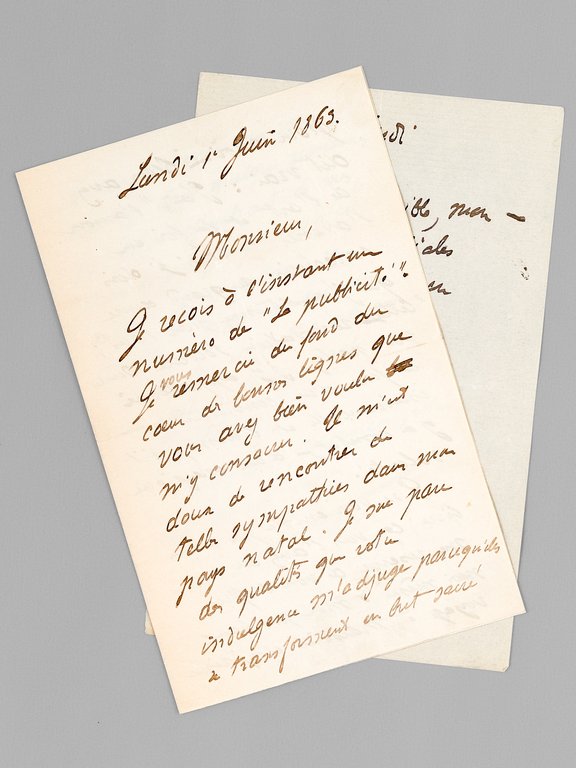 Lundi 1r Juin 1863.
Monsieur,
Je reçois à l'instant un
numéro de "La publicité".
Je vous remercie du fond du
coeur des bonnes lignes que
vous avez bien voulu
m'y consacrer. Il m'est
doux de rencontrer de
telles sympathies dans mon
pays natal. Je me pare
des qualités que votre
indulgence m'adjuge parcequ'elles
se transforment en but sacré
mon